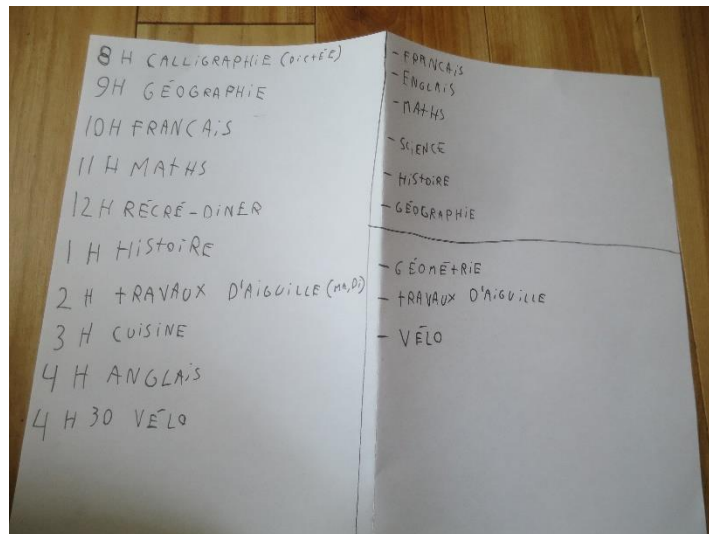 8 H CALLIGRAPHIE (DICTÉE)
9H GÉOGRAPHIE
10H FRANCAIS
11 H MATHS
12 H RÉCRÉ-DINER
1 H HISTOIRE
2 H TRAVAUX D'AIGUILLE (MA, DI)
3 H CUISINE
4 H ANGLAIS
4 H 30 VÉLO
- FRANCAIS
- ENGLAIS
- MATHS
- SCIENCE
- HISTOIRE
- GÉOGRAPHIE
- GÉOMÉTRIE
- TRAVAUX D'AIGUILLE
- VÉLO